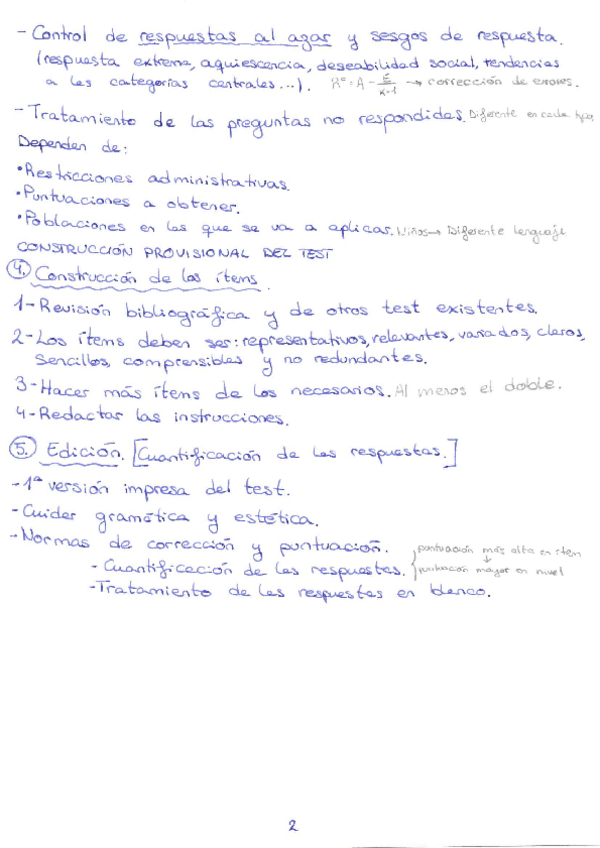 - Control de respuestas al azar y sesgos de respuesta.
(respuesta extrema, aquiescencia, deseabilidad social, tendencias
a las categorías centrales...). Rᶜ = A - E/(K-1) → corrección de errores.
- Tratamiento de las preguntas no respondidas. Diferente en cada tipo.
Dependen de:
• Restricciones administrativas.
• Puntuaciones a obtener.
• Poblaciones en las que se va a aplicar. Niños → Diferente lenguaje
CONSTRUCCIÓN PROVISIONAL DEL TEST
4. Construcción de los ítems.
1- Revisión bibliográfica y de otros test existentes.
2- Los ítems deben ser: representativos, relevantes, variados, claros,
sencillos, comprensibles y no redundantes.
3- Hacer más ítems de los necesarios. Al menos el doble.
4- Redactar las instrucciones.
5. Edición. [Cuantificación de las respuestas.]
- 1ª versión impresa del test.
- Cuidar gramática y estética.
- Normas de corrección y puntuación.
- Cuantificación de las respuestas. { puntuación más alta en ítem
↓
puntuación mayor en nivel
- Tratamiento de las respuestas en blanco.
2